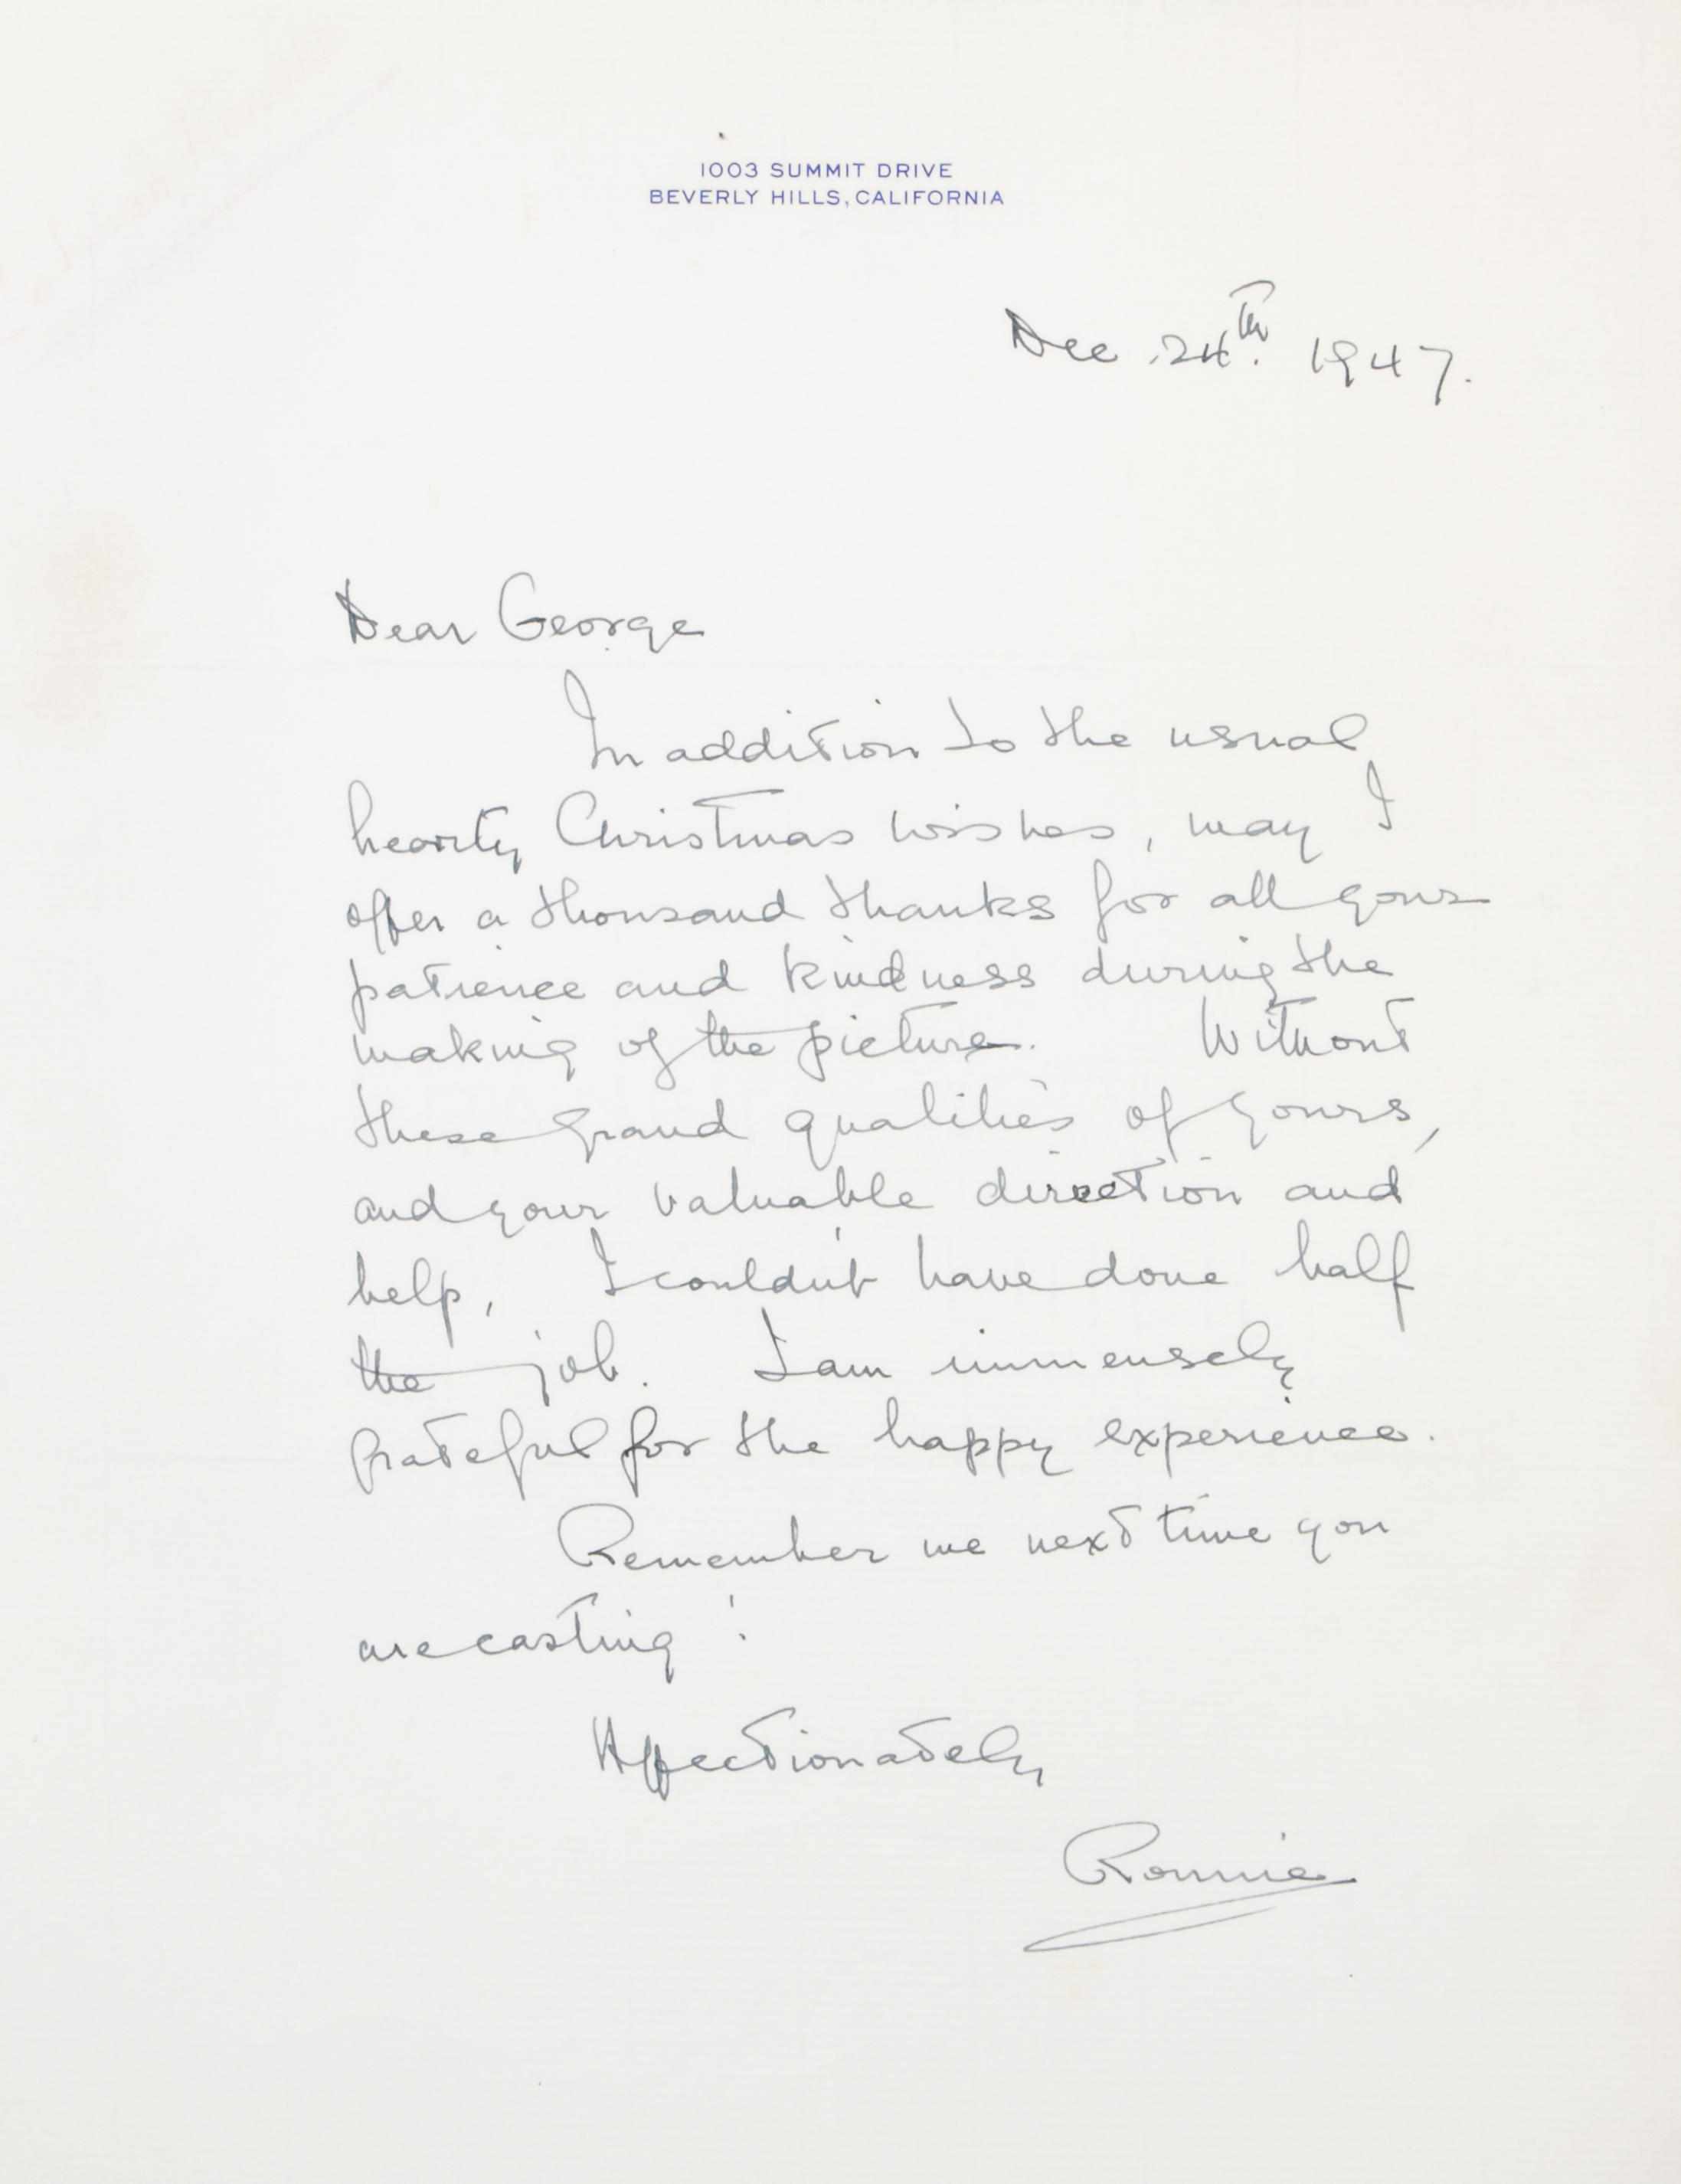 1003 SUMMIT DRIVE
BEVERLY HILLS, CALIFORNIA
Dec 24th. 1947.
Dear George
In addition to the usual
hearty Christmas wishes, may I
offer a thousand thanks for all your
patience and kindness during the
making of the picture. Without
these grand qualities of yours,
and your valuable direction and
help, I couldn't have done half
the job. I am immensely
grateful for the happy experience.
Remember me next time you
are casting!
Affectionately
Ronnie